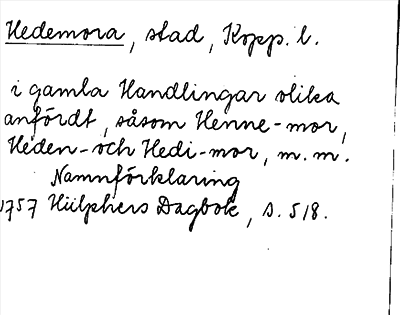 Hedemora, stad, Kopp. l.
i gamla Handlingar olika
anfördt, såsom Henne-mor,
Heden- och Hedi-mor, m. m.
Namnförklaring
1757 Hülphers Dagbok, s. 518.